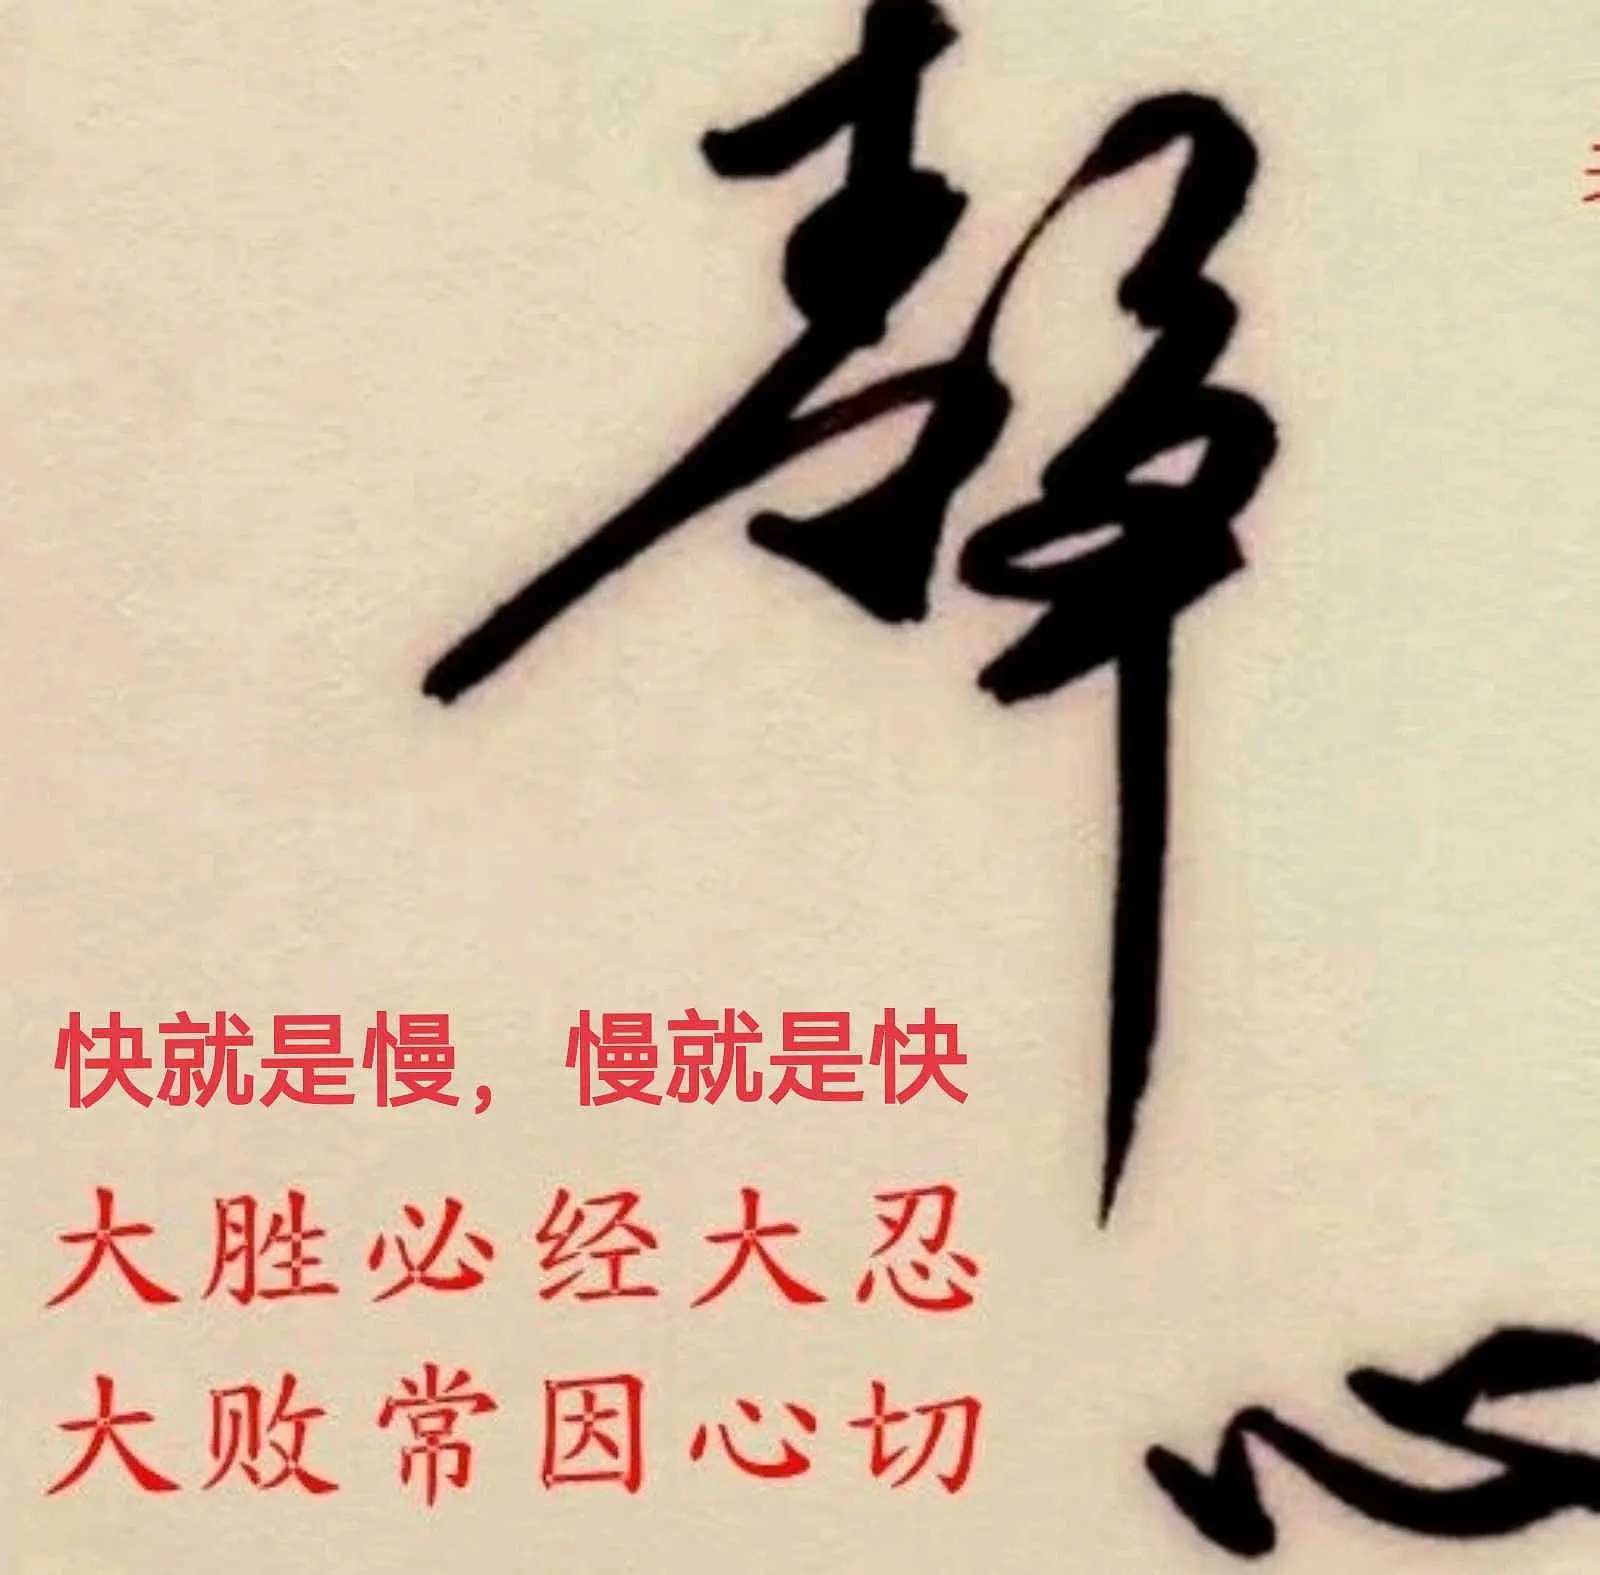 静
心
快就是慢，慢就是快
大胜必经大忍
大败常因心切